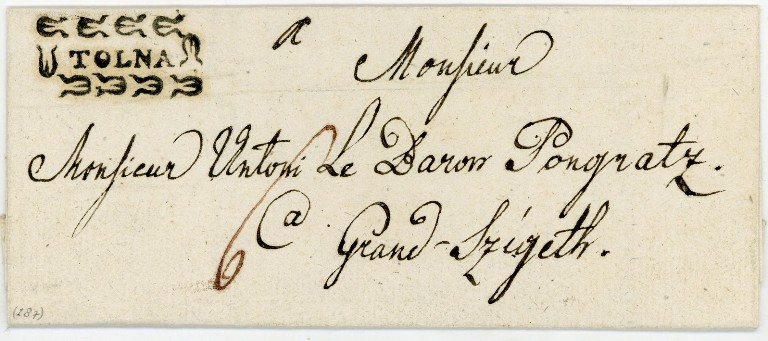 TOLNA
a
Monsieur
Monsieur Antoni Le Baron Pongratz.
6
a Grand-Szigeth.
(287)